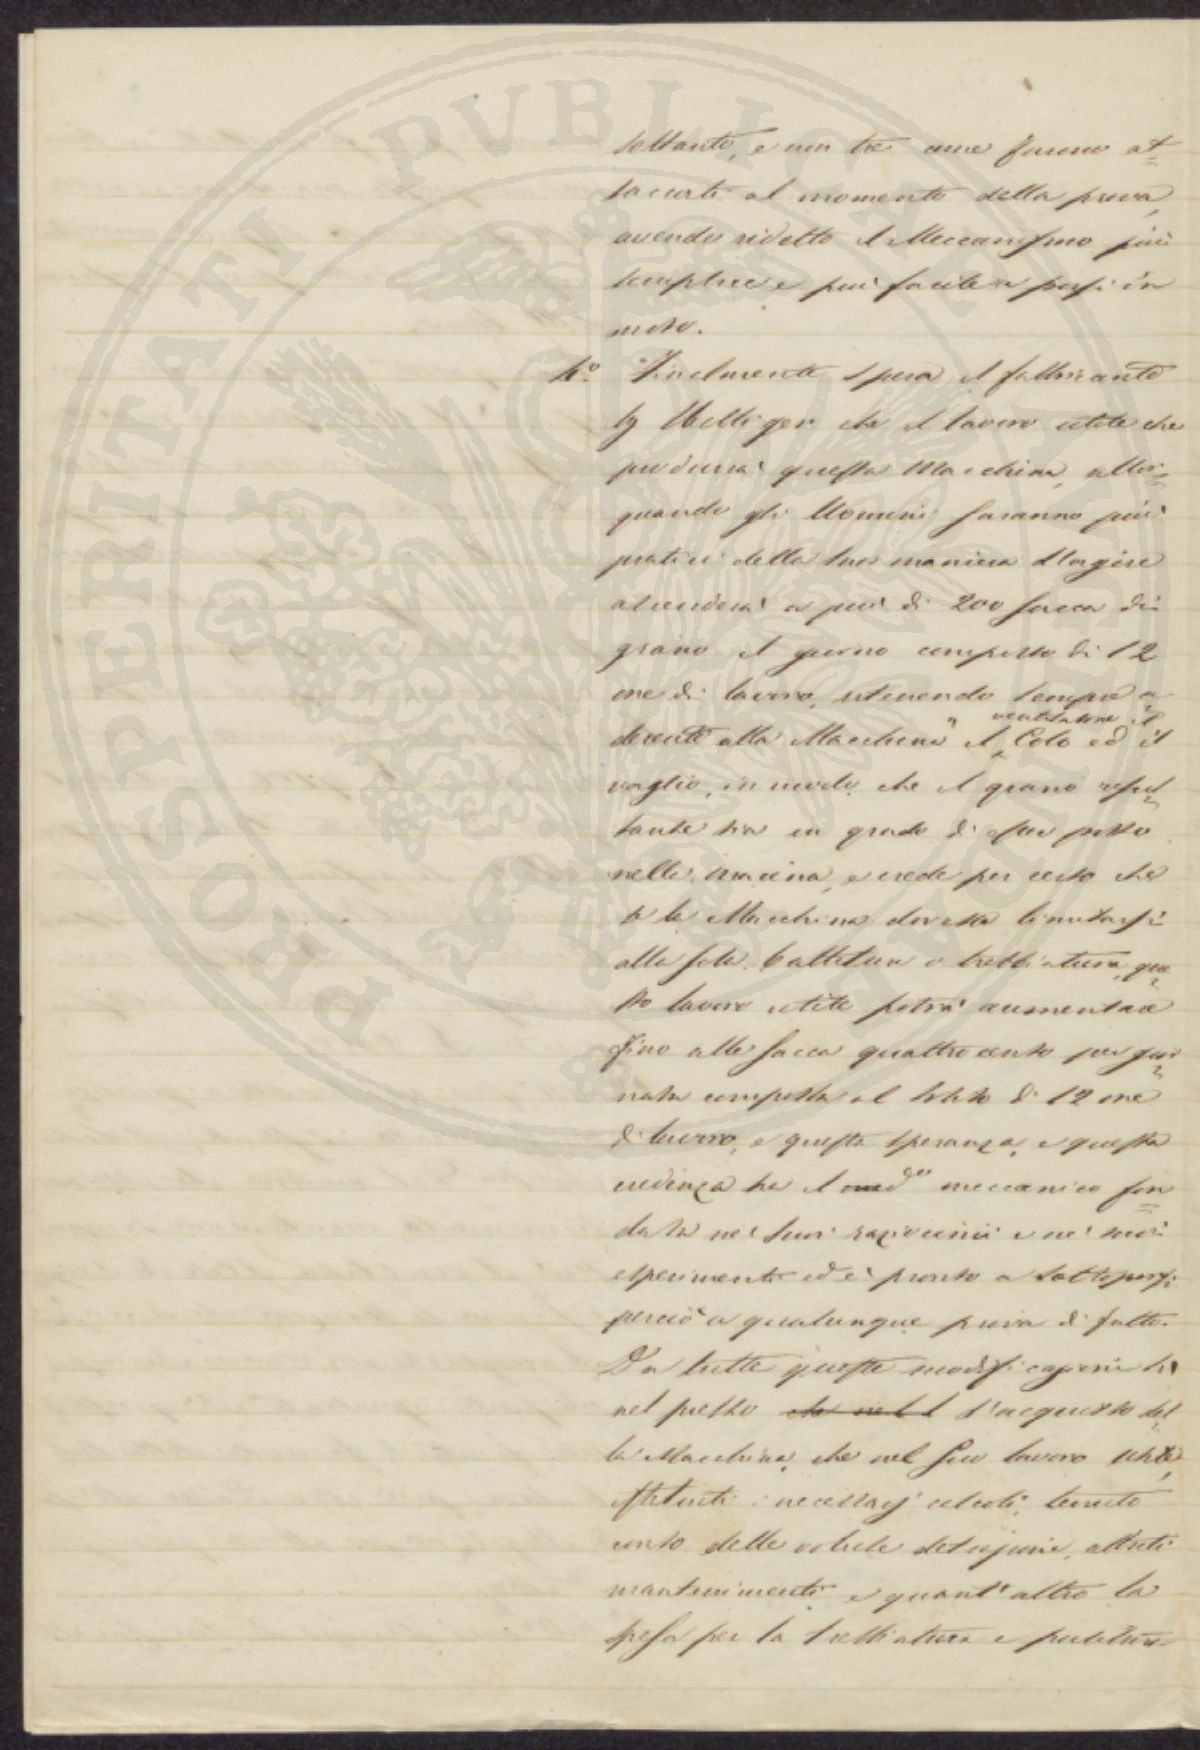 soltanto, e non tre come furono at=
taccati al momento della prova,
avendo ridotto il Meccanismo più
semplice e più facile a porsi in
moto.
4.° Finalmente spera il fabbricante
che il lavoro utile che
produrrà questa Macchina, allor=
quando gli Uomini saranno più
pratici della sua maniera d'agire
ascenderà a più di 200 sacca di
grano il giorno composto di 12
ore di lavoro, ritenendo sempre a=
derente alla Macchina il ventilatore il Colo ed il
vaglio, in modo che il grano resul=
tante sia in grado di esser posto
nella macina, e crede per certo che
se la Macchina dovesse limitarsi
alla sola battitura o trebbiatura, que=
sto lavoro utile potrà aumentare
fino alle sacca quattrocento per gior=
nata composta al solito di 12 ore
di lavoro, e questa speranza, e questa
credenza ha il d.° meccanico fon=
data nei suoi raziocinii e nei suoi
esperimenti ed è pronto a sottoporsi
perciò a qualunque prova di fatto.
Da tutte queste modificazioni sì
nel prezzo che nel d'acquisto del=
la Macchina, che nel suo lavoro utile,
istituiti i necessarj calcoli, tenuto
conto delle volute detrazioni, attriti
mantenimenti e quant'altro la
spesa per la trebbiatura e pulitura